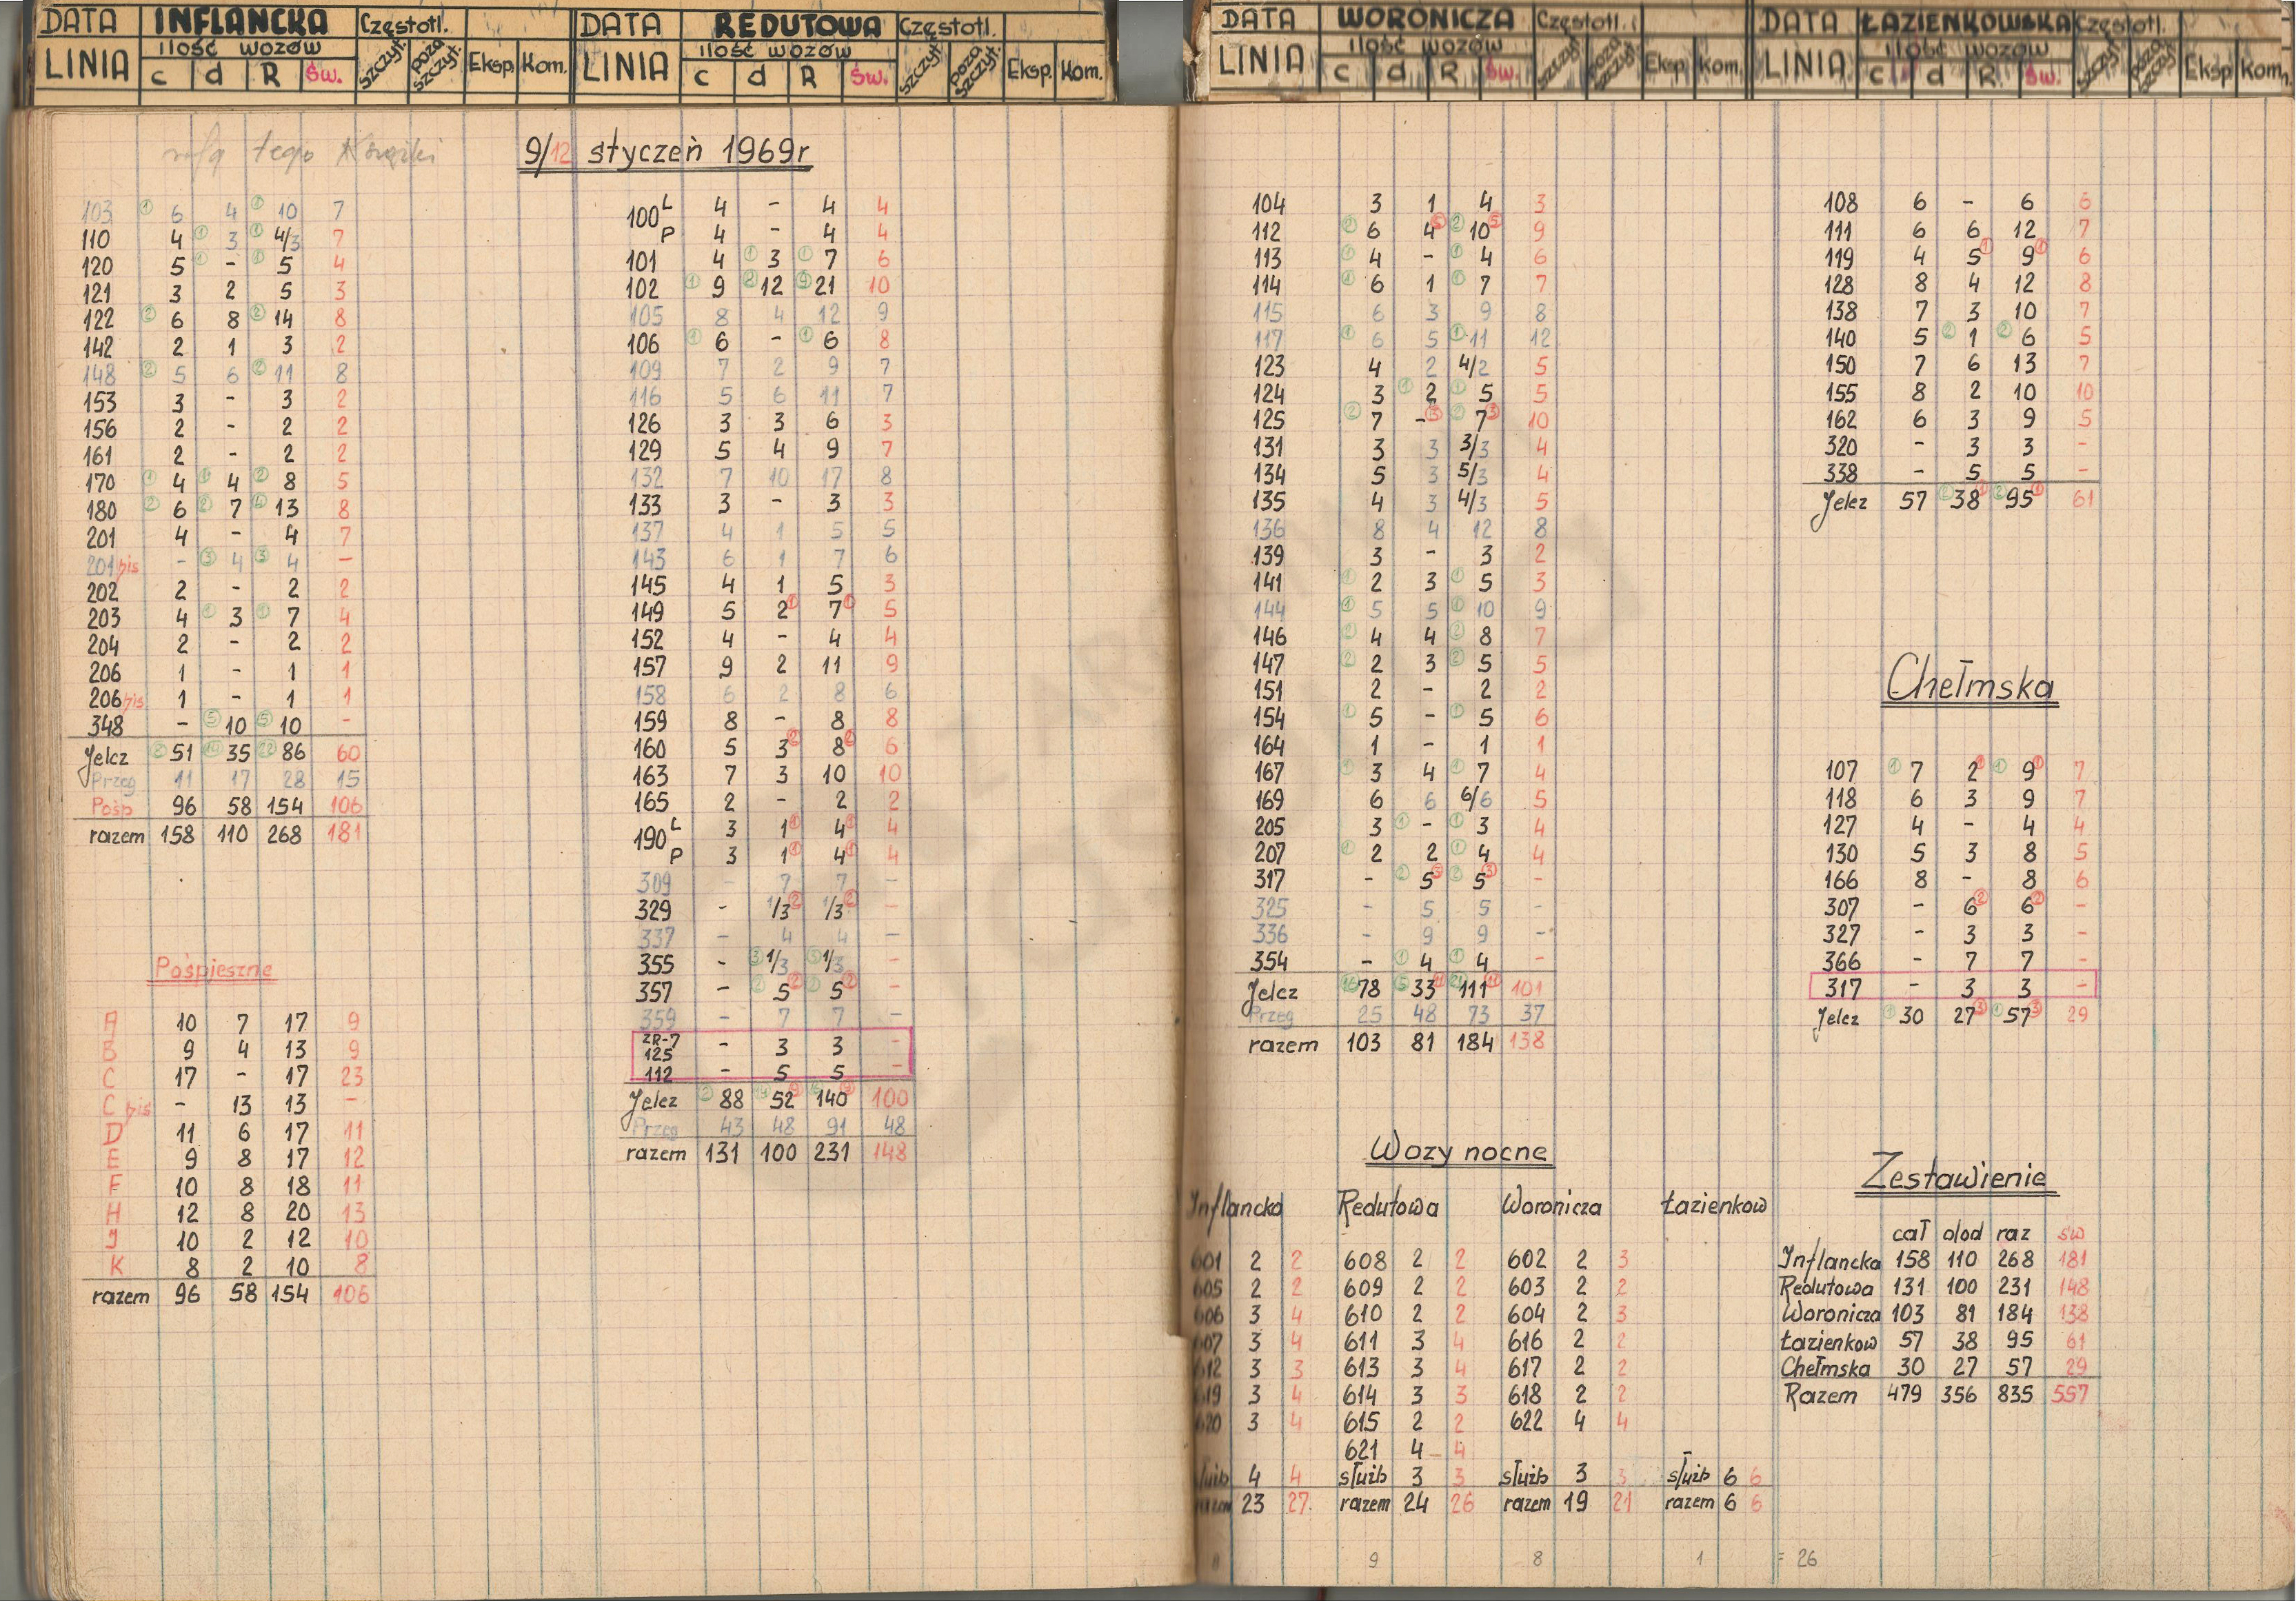 DATA INFLANCKA Częstotl.
LINIA ilość wozów szczyt. poza szczyt. Eksp. Kom.
c d R Św.
DATA REDUTOWA Częstotl.
LINIA ilość wozów szczyt. poza szczyt. Eksp. Kom.
c d R Św.
DATA WORONICZA Częstotl.
LINIA ilość wozów szczyt. poza szczyt. Eksp. Kom.
c d R Św.
DATA ŁAZIENKOWSKA Częstotl.
LINIA ilość wozów szczyt. poza szczyt. Eksp. Kom.
c d R Św.
9/12 styczeń 1969r
103 ① 6 4 ① 10 7
110 4 ① 3 ① 4/3 7
120 5 ① - ① 5 4
121 3 2 5 3
122 ② 6 8 ② 14 8
142 2 1 3 2
148 ② 5 6 ② 11 8
153 3 - 3 2
156 2 - 2 2
161 2 - 2 2
170 ① 4 ① 4 ② 8 5
180 ② 6 ② 7 ④ 13 8
201 4 - 4 7
201 bis - ③ 4 ③ 4 -
202 2 - 2 2
203 4 ① 3 ① 7 4
204 2 - 2 2
206 1 - 1 1
206 bis 1 - 1 1
348 - ⑤ 10 ⑤ 10 -
Jelcz ⑧ 51 ⑭ 35 ㉒ 86 60
Przeg 11 17 28 15
Pośp 96 58 154 106
razem 158 110 268 181
Pośpieszne
A 10 7 17 9
B 9 4 13 9
C 17 - 17 23
C bis - 13 13 -
D 11 6 17 11
E 9 8 17 12
F 10 8 18 11
H 12 8 20 13
J 10 2 12 10
K 8 2 10 8
razem 96 58 154 106
100 L 4 - 4 4
P 4 - 4 4
101 4 ① 3 ① 7 6
102 ① 9 ⑧ 12 ⑨ 21 10
105 8 4 12 9
106 ① 6 - ① 6 8
109 7 2 9 7
116 5 6 11 7
126 3 3 6 3
129 5 4 9 7
132 7 10 17 8
133 3 - 3 3
137 4 1 5 5
143 6 1 7 6
145 4 1 5 3
149 5 2 ① 7 ① 5
152 4 - 4 4
157 9 2 11 9
158 6 2 8 6
159 8 - 8 8
160 5 3 ② 8 ② 6
163 7 3 10 10
165 2 - 2 2
190 L 3 1 ① 4 ① 4
P 3 1 ① 4 ① 4
309 - 7 7 -
329 - 1/3 ② 1/3 ② -
337 - 4 4 -
355 - ③ 1/3 ③ 1/3 -
357 - ② 5 ② ② 5 ② -
359 - 7 7 -
ZR-7
125 - 3 3 -
112 - 5 5 -
Jelcz ② 88 52 140 100
Przeg 43 48 91 48
razem 131 100 231 148
104 3 1 4 3
112 ② 6 4 ⑤ ② 10 ⑤ 9
113 ① 4 - ① 4 6
114 ① 6 1 ① 7 7
115 6 3 9 8
117 ① 6 5 ① 11 12
123 4 2 4/2 5
124 3 ① 2 ① 5 5
125 ② 7 - ③ ② 7 ③ 10
131 3 3 3/3 4
134 5 3 5/3 4
135 4 3 4/3 5
136 8 4 12 8
139 3 - 3 2
141 ① 2 3 ① 5 3
144 ① 5 5 ① 10 9
146 ② 4 4 ② 8 7
147 ② 2 3 ② 5 5
151 2 - 2 2
154 ① 5 - ① 5 6
164 1 - 1 1
167 ① 3 4 ① 7 4
169 6 6 6/6 5
205 3 ① - ① 3 4
207 ① 2 2 ① 4 4
317 - ② 5 ③ ② 5 ③ -
325 - 5 5 -
336 - 9 9 -
354 - ① 4 ① 4 -
Jelcz ⑯ 78 ⑤ 33 ⑪ ㉑ 111 ⑪ 101
Przeg 25 48 73 37
razem 103 81 184 138
108 6 - 6 6
111 6 6 12 7
119 4 5 ① 9 ① 6
128 8 4 12 8
138 7 3 10 7
140 5 ② 1 ② 6 5
150 7 6 13 7
155 8 2 10 10
162 6 3 9 5
320 - 3 3 -
338 - 5 5 -
Jelcz 57 ② 38 ① ② 95 ① 61
Chełmska
107 ① 7 2 ① ① 9 ① 7
118 6 3 9 7
127 4 - 4 4
130 5 3 8 5
166 8 - 8 6
307 - 6 ② 6 ② -
327 - 3 3 -
366 - 7 7 -
317 - 3 3 -
Jelcz ① 30 27 ③ ① 57 ③ 29
Wozy nocne
Inflancka Redutowa Woronicza Łazienkow
601 2 2 608 2 2 602 2 3
605 2 2 609 2 2 603 2 2
606 3 4 610 2 2 604 2 3
607 3 4 611 3 4 616 2 2
612 3 3 613 3 4 617 2 2
619 3 4 614 3 3 618 2 2
620 3 4 615 2 2 622 4 4
621 4 4
służb 4 4 służb 3 3 służb 3 3 służb 6 6
razem 23 27 razem 24 26 razem 19 21 razem 6 6
8 9 8 1 = 26
Zestawienie
cał dod raz św
Inflancka 158 110 268 181
Redutowa 131 100 231 148
Woronicza 103 81 184 138
Łazienkow 57 38 95 61
Chełmska 30 27 57 29
Razem 479 356 835 557